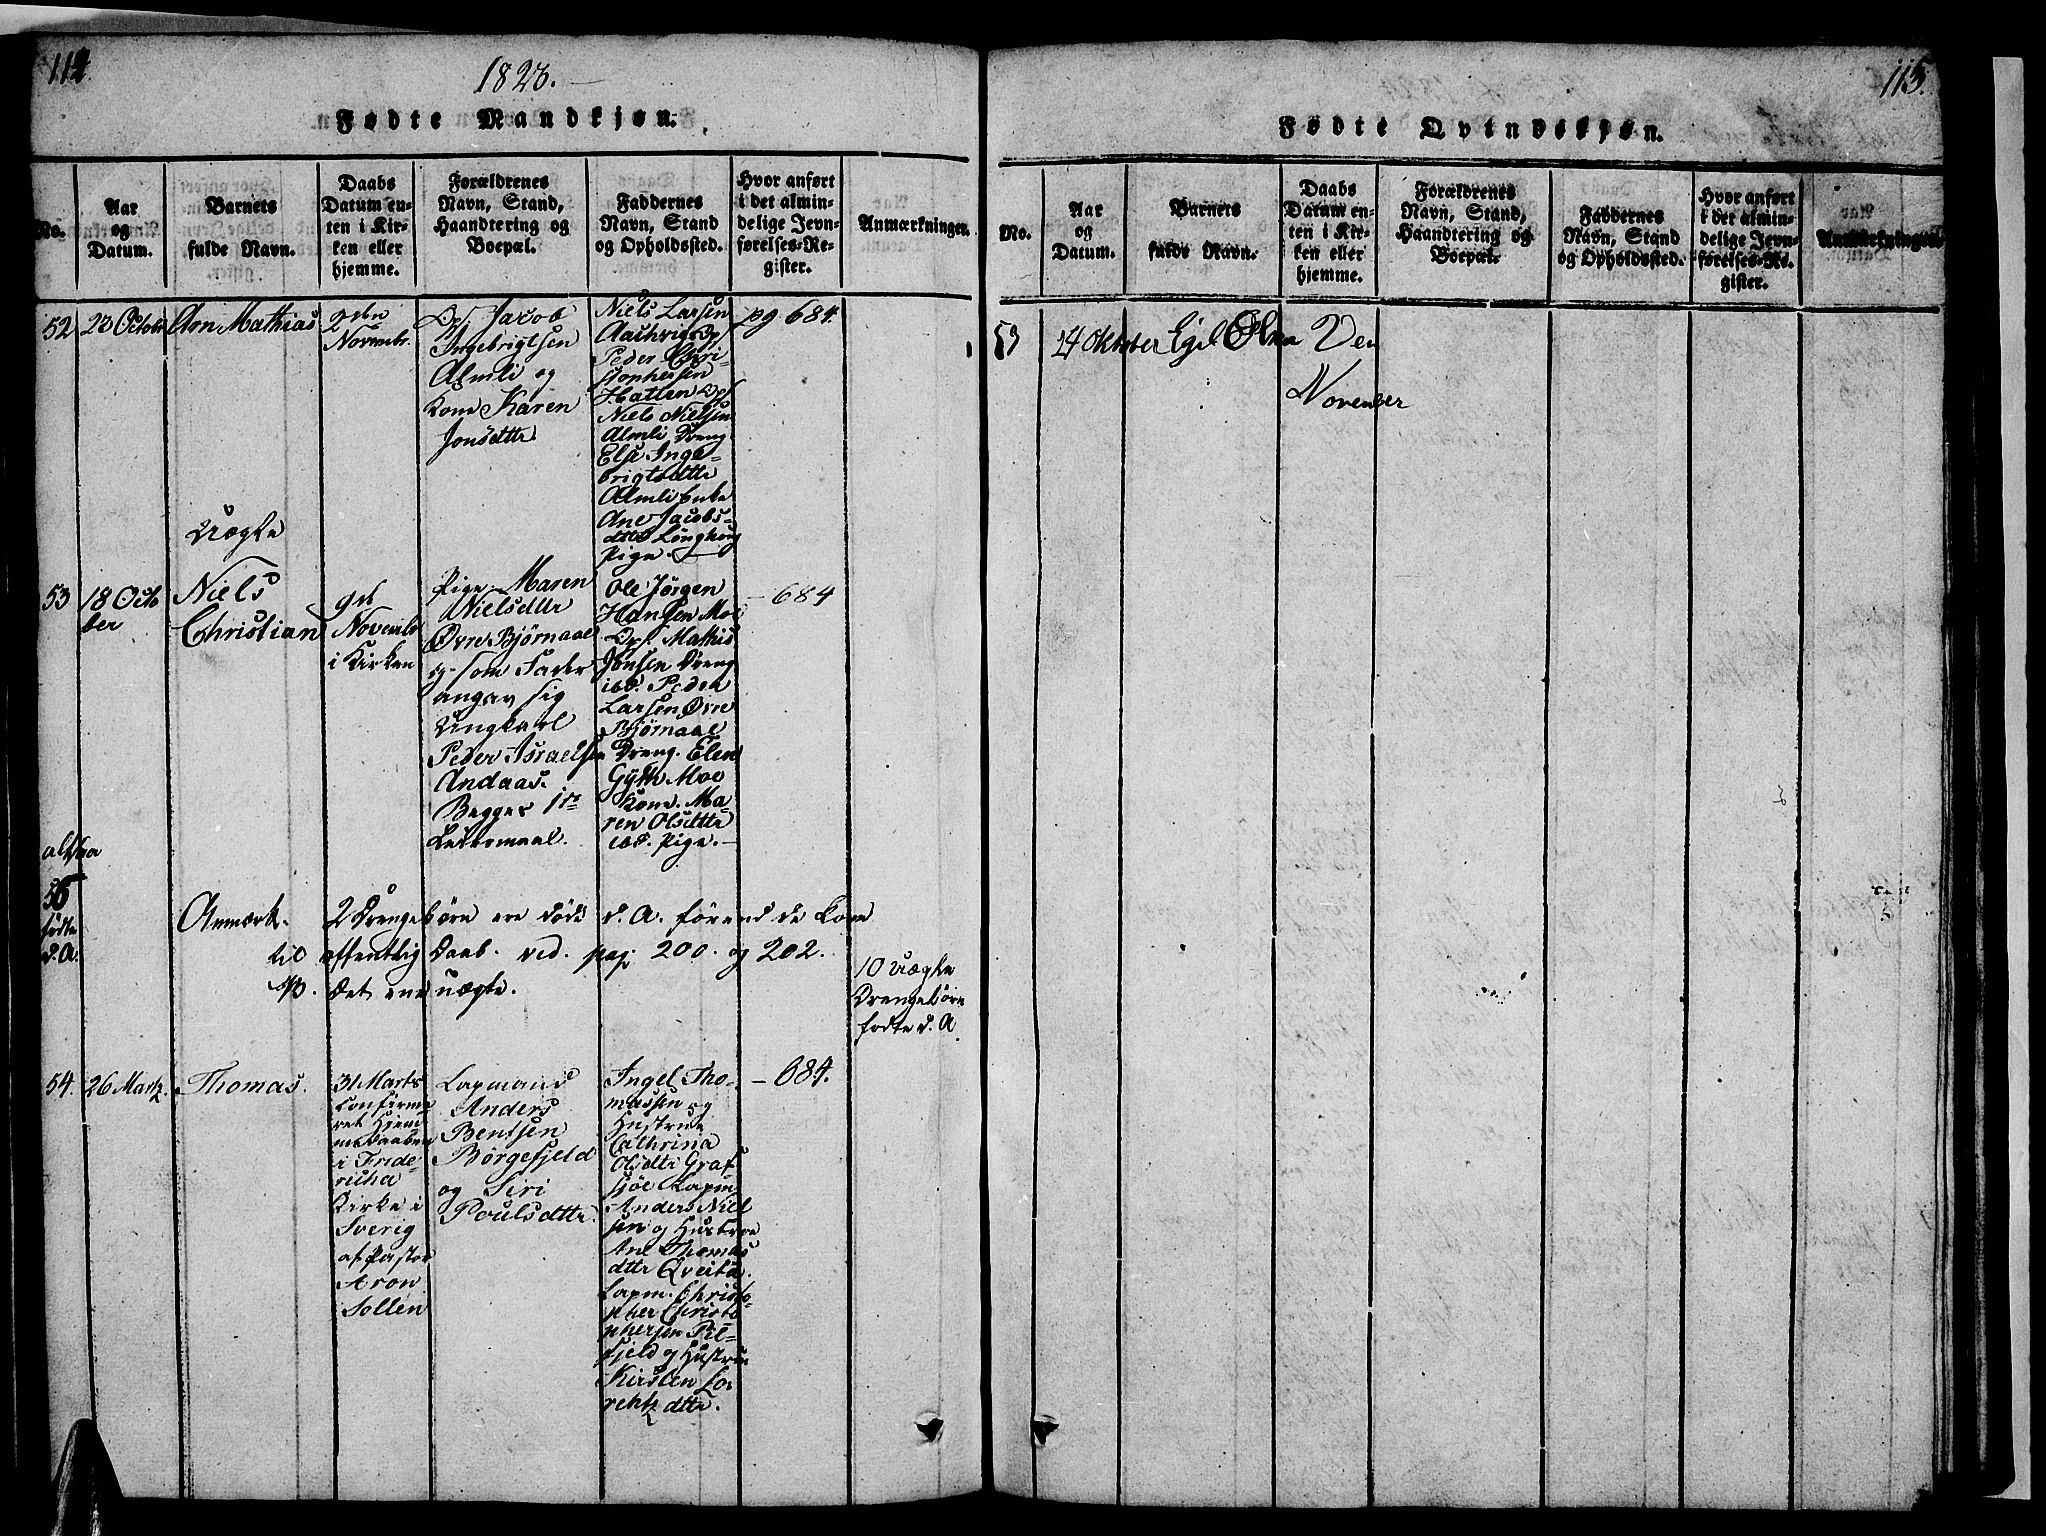 114
1823.
Fødte Mandkjøn.
No.
Aar
og
Datum.
Barnets
fulde Navn.
Daabs
Datum en-
ten i Kir-
ken eller
hjemme.
Forældrenes
Navn, Stand,
Haandtering og
Boepæl.
Faddernes
Navn, Stand
og Opholdssted.
Hvor anført
i det almin-
delige Jevn-
førelses-Re-
gister.
Anmærkninger.
52
23 Octobr
Aron Mathias
2den
Novembr.
Jacob
Ingebrigtsen
Almli og
Kone Karen
Jonsdttr
Niels Larsen
Peder Chri-
stophersen
Hatlen
Niels Nielsen
Almli Dreng
Else Inge-
brigtsdttr
Almli Enke
Ane Jacobs-
dttr
Pige.
pg 684.
Uægte
53
18 Octo
ber
Niels
Christian
9de
Novembr
i Kirken
Pige Maren
Nielsdttr
Øvre Bjørnaae
og som Fader
angav sig
Ungkarl
Peder Israelsen
Andaas.
Begges 1ste
Leiermaal.
Ole Jørgen
Hansen Moe
Mathis
Jonsen Dreng
ibd. Peder
Larsen Øvre
Bjørnaae
Dreng. Elen
Gyth Moe
Kone. Ma-
ren Olsdttr
ibd. Pige.
- 684
altsaa
56
fødte
d. A.
Anmærk. 2 Drengebørn ere døde d. A. førend de kom
til offentlig Daab. vid. pag 200. og 202.
Det ene uægte.
10 uægte
Drengebørn
fødte d. A.
54.
26 Marts.
Thomas.
31 Marts
Confirme
ret Hjem
medaaben
i Fride-
richa
Kirke i
Sverig
af Pastor
Aron
Sollen
Lapmand
Anders
Bentsen
Børgefjeld
og Siri
Poulsdttr.
Ingel Tho-
massen og
Hustrue
Cathrina
Olsdttr Graf
sjøe Lapm.
Anders Niel
sen og Hustrue
Ane Thomas
dttr Qveita.
Lapm. Christo-
pher Christo
phersen Pil-
fjeld og Hustrue
Kirsten Lo-
rentz dttr.
- 684.
115.
Fødte Qvindekjøn.
No.
Aar
og
Datum.
Barnets
fulde Navn.
Daabs
Datum en-
ten i Kir-
ken eller
hjemme.
Forældrenes
Navn, Stand,
Haandtering og
Boepæl.
Faddernes
Navn, Stand
og Opholdssted.
Hvor anført
i det almin-
delige Jevn-
førelses-Re-
gister.
Anmærkninger.
53
Oktober
November